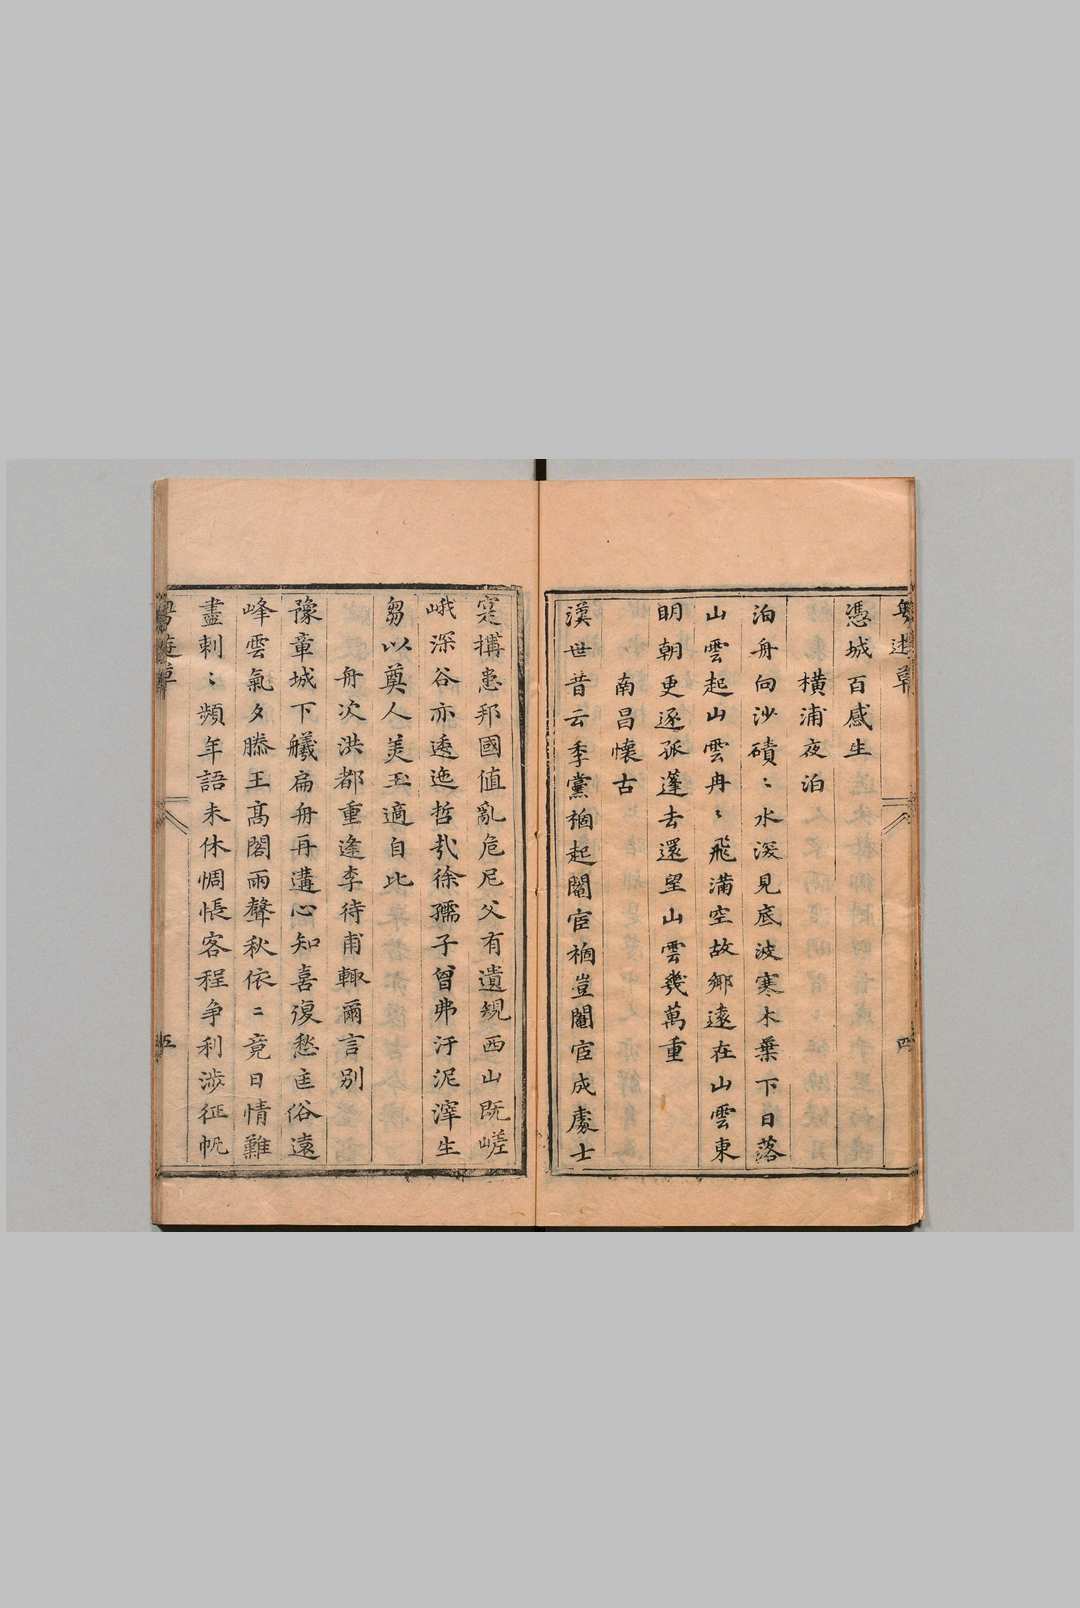 粤遊草
四
憑城百感生
橫浦夜泊
泊舟向沙磧〻水淺見底波寒木葉下日落
山雲起山雲冉〻飛滿空故鄉遠在山雲東
明朝更逐孤蓬去還望山雲幾萬重
南昌懷古
漢世昔云季黨禍起閹宦禍豈閹宦成處士
寔搆患邦國值亂危尼父有遺規西山既嵯
峨深谷亦逶迤哲㢤徐孺子曾弗汙泥滓生
芻以奠人美玉適自比
舟次洪都重逢李待甫輙爾言別
豫章城下艤扁舟再遘心知喜復愁匡俗遠
峰雲氣夕滕王髙閣雨聲秋依〻竟日情難
盡刺〻頻年語未休惆悵客程爭利涉征帆
粤遊草
五